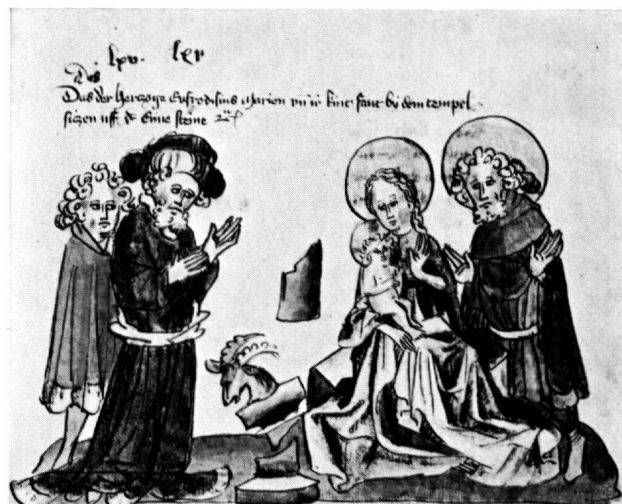 lxv. lxx
Das
Das der herzoge Eufrodisius Marien vnd ir kint fant bi dem tempel
sitzen vff eime steine